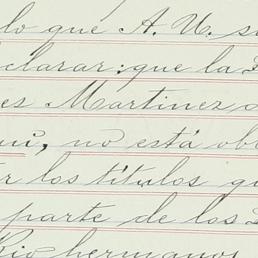 lo que A. U. s
clarar: que la
es Martinez
ui, no está ob
r los títulos q
parte de los
Rio hermanos